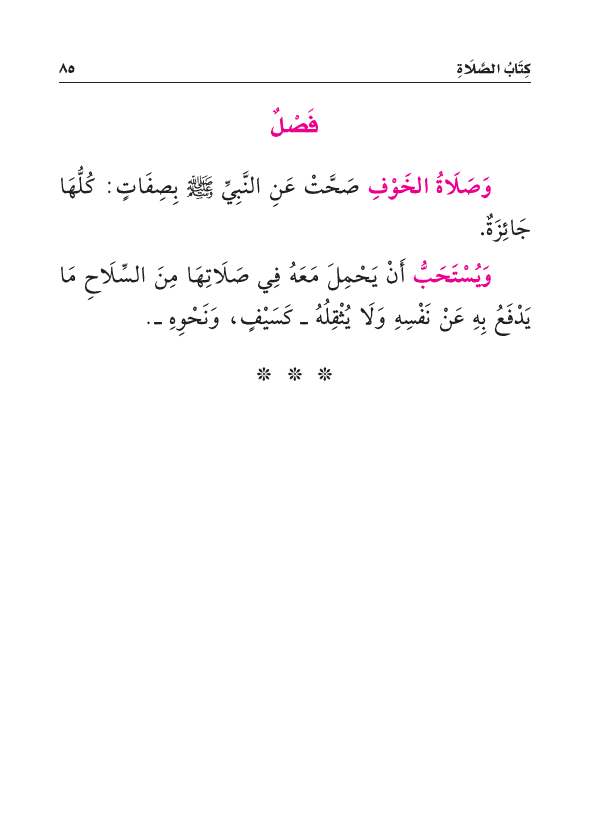 كِتَابُ الصَّلَاةِ ٨٥
فَصْلٌ
وَصَلَاةُ الخَوْفِ صَحَّتْ عَنِ النَّبِيِّ ﷺ بِصِفَاتٍ: كُلُّهَا
جَائِزَةٌ.
وَيُسْتَحَبُّ أَنْ يَحْمِلَ مَعَهُ فِي صَلَاتِهَا مِنَ السِّلَاحِ مَا
يَدْفَعُ بِهِ عَنْ نَفْسِهِ وَلَا يُثْقِلُهُ ـ كَسَيْفٍ، وَنَحْوِهِ ـ.
* * *